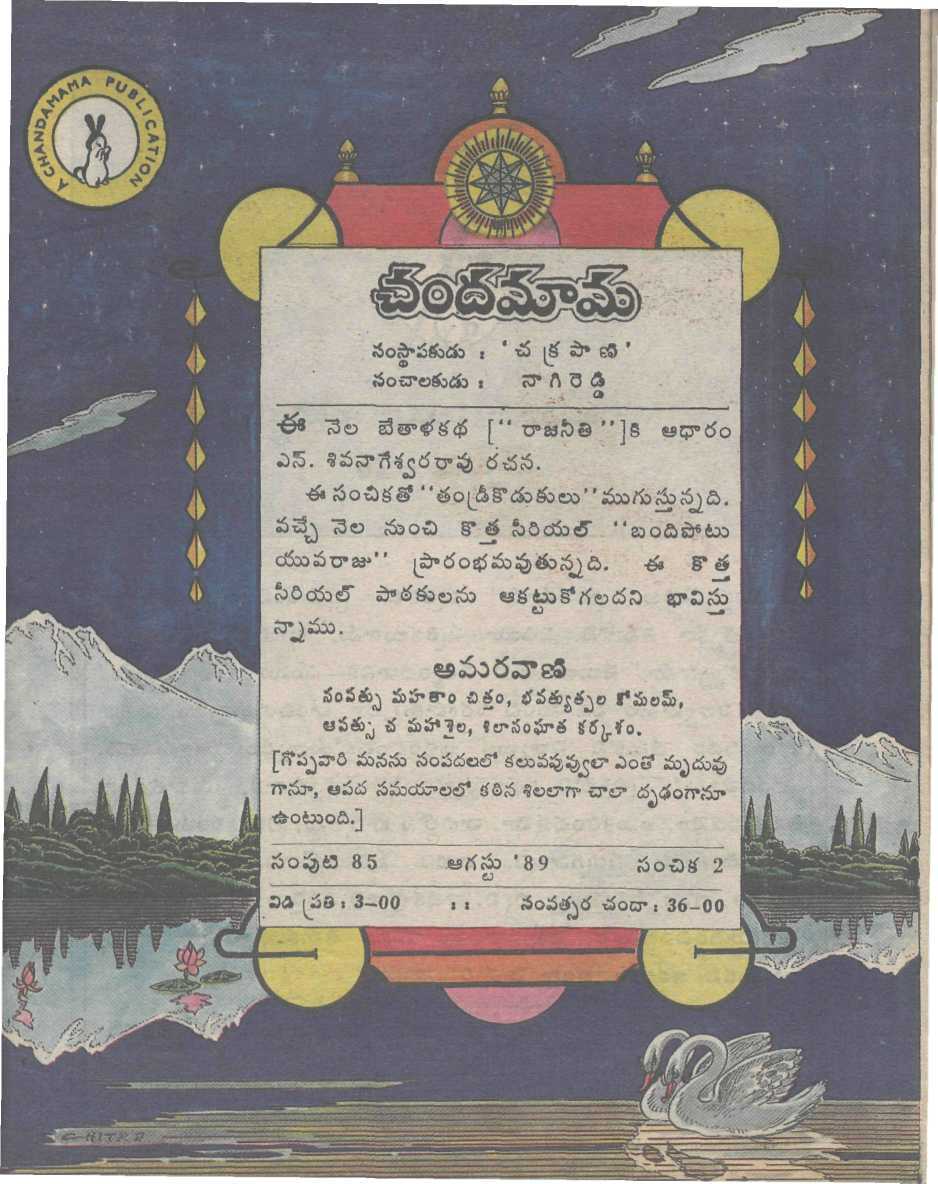 A CHANDAMAMA PUBLICATION
చందమామ
సంస్థాపకుడు : 'చక్రపాణి'
సంచాలకుడు : నాగిరెడ్డి
ఈ నెల బేతాళకథ [''రాజనీతి'']కి ఆధారం
ఎన్. శివనాగేశ్వరరావు రచన.
ఈ సంచికతో ''తండ్రీకొడుకులు'' ముగుస్తున్నది.
వచ్చే నెల నుంచి కొత్త సీరియల్ ''బందిపోటు
యువరాజు'' ప్రారంభమవుతున్నది. ఈ కొత్త
సీరియల్ పాఠకులను ఆకట్టుకోగలదని భావిస్తు
న్నాము.
అమరవాణి
సంపత్సు మహతాం చిత్తం, భవత్యుత్పల కోమలమ్,
ఆపత్సు చ మహాశైల, శిలాసంఘాత కర్కశం.
[గొప్పవారి మనసు సంపదలలో కలువపువ్వులా ఎంతో మృదువు
గానూ, ఆపద సమయాలలో కఠిన శిలలాగా చాలా దృఢంగానూ
ఉంటుంది.]
సంపుటి 85 ఆగస్టు '89 సంచిక 2
విడి ప్రతి : 3-00 :: సంవత్సర చందా : 36-00